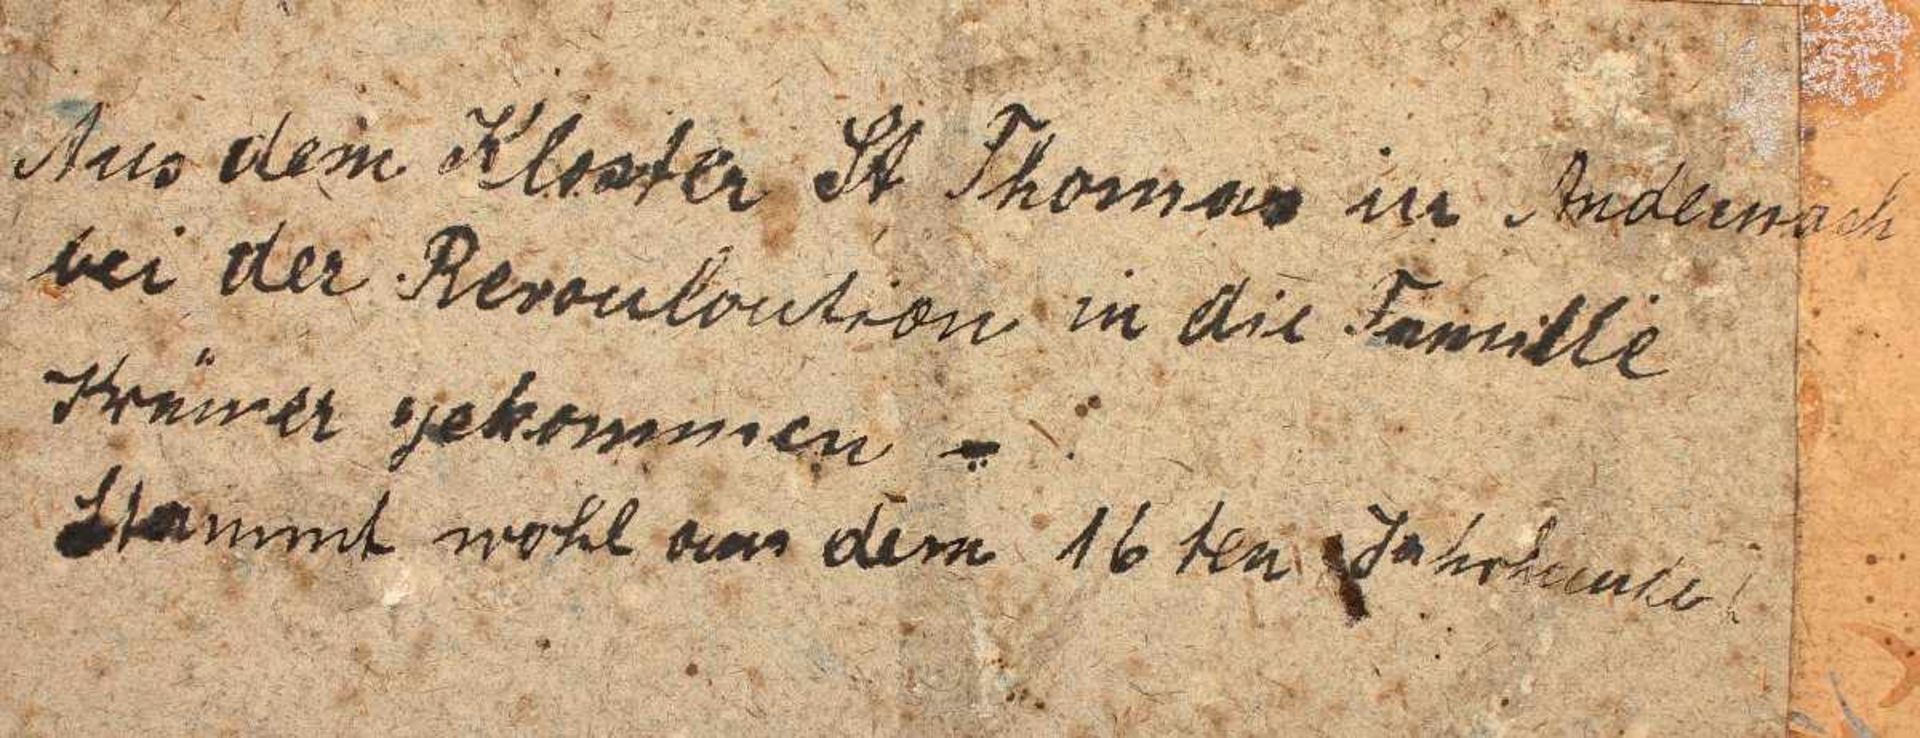 Aus dem Kloster St Thomas in Andernach
bei der Revouloution in die Familie
Krämer gekommen =
Stammt wohl aus dem 16 ten Jahrhundert